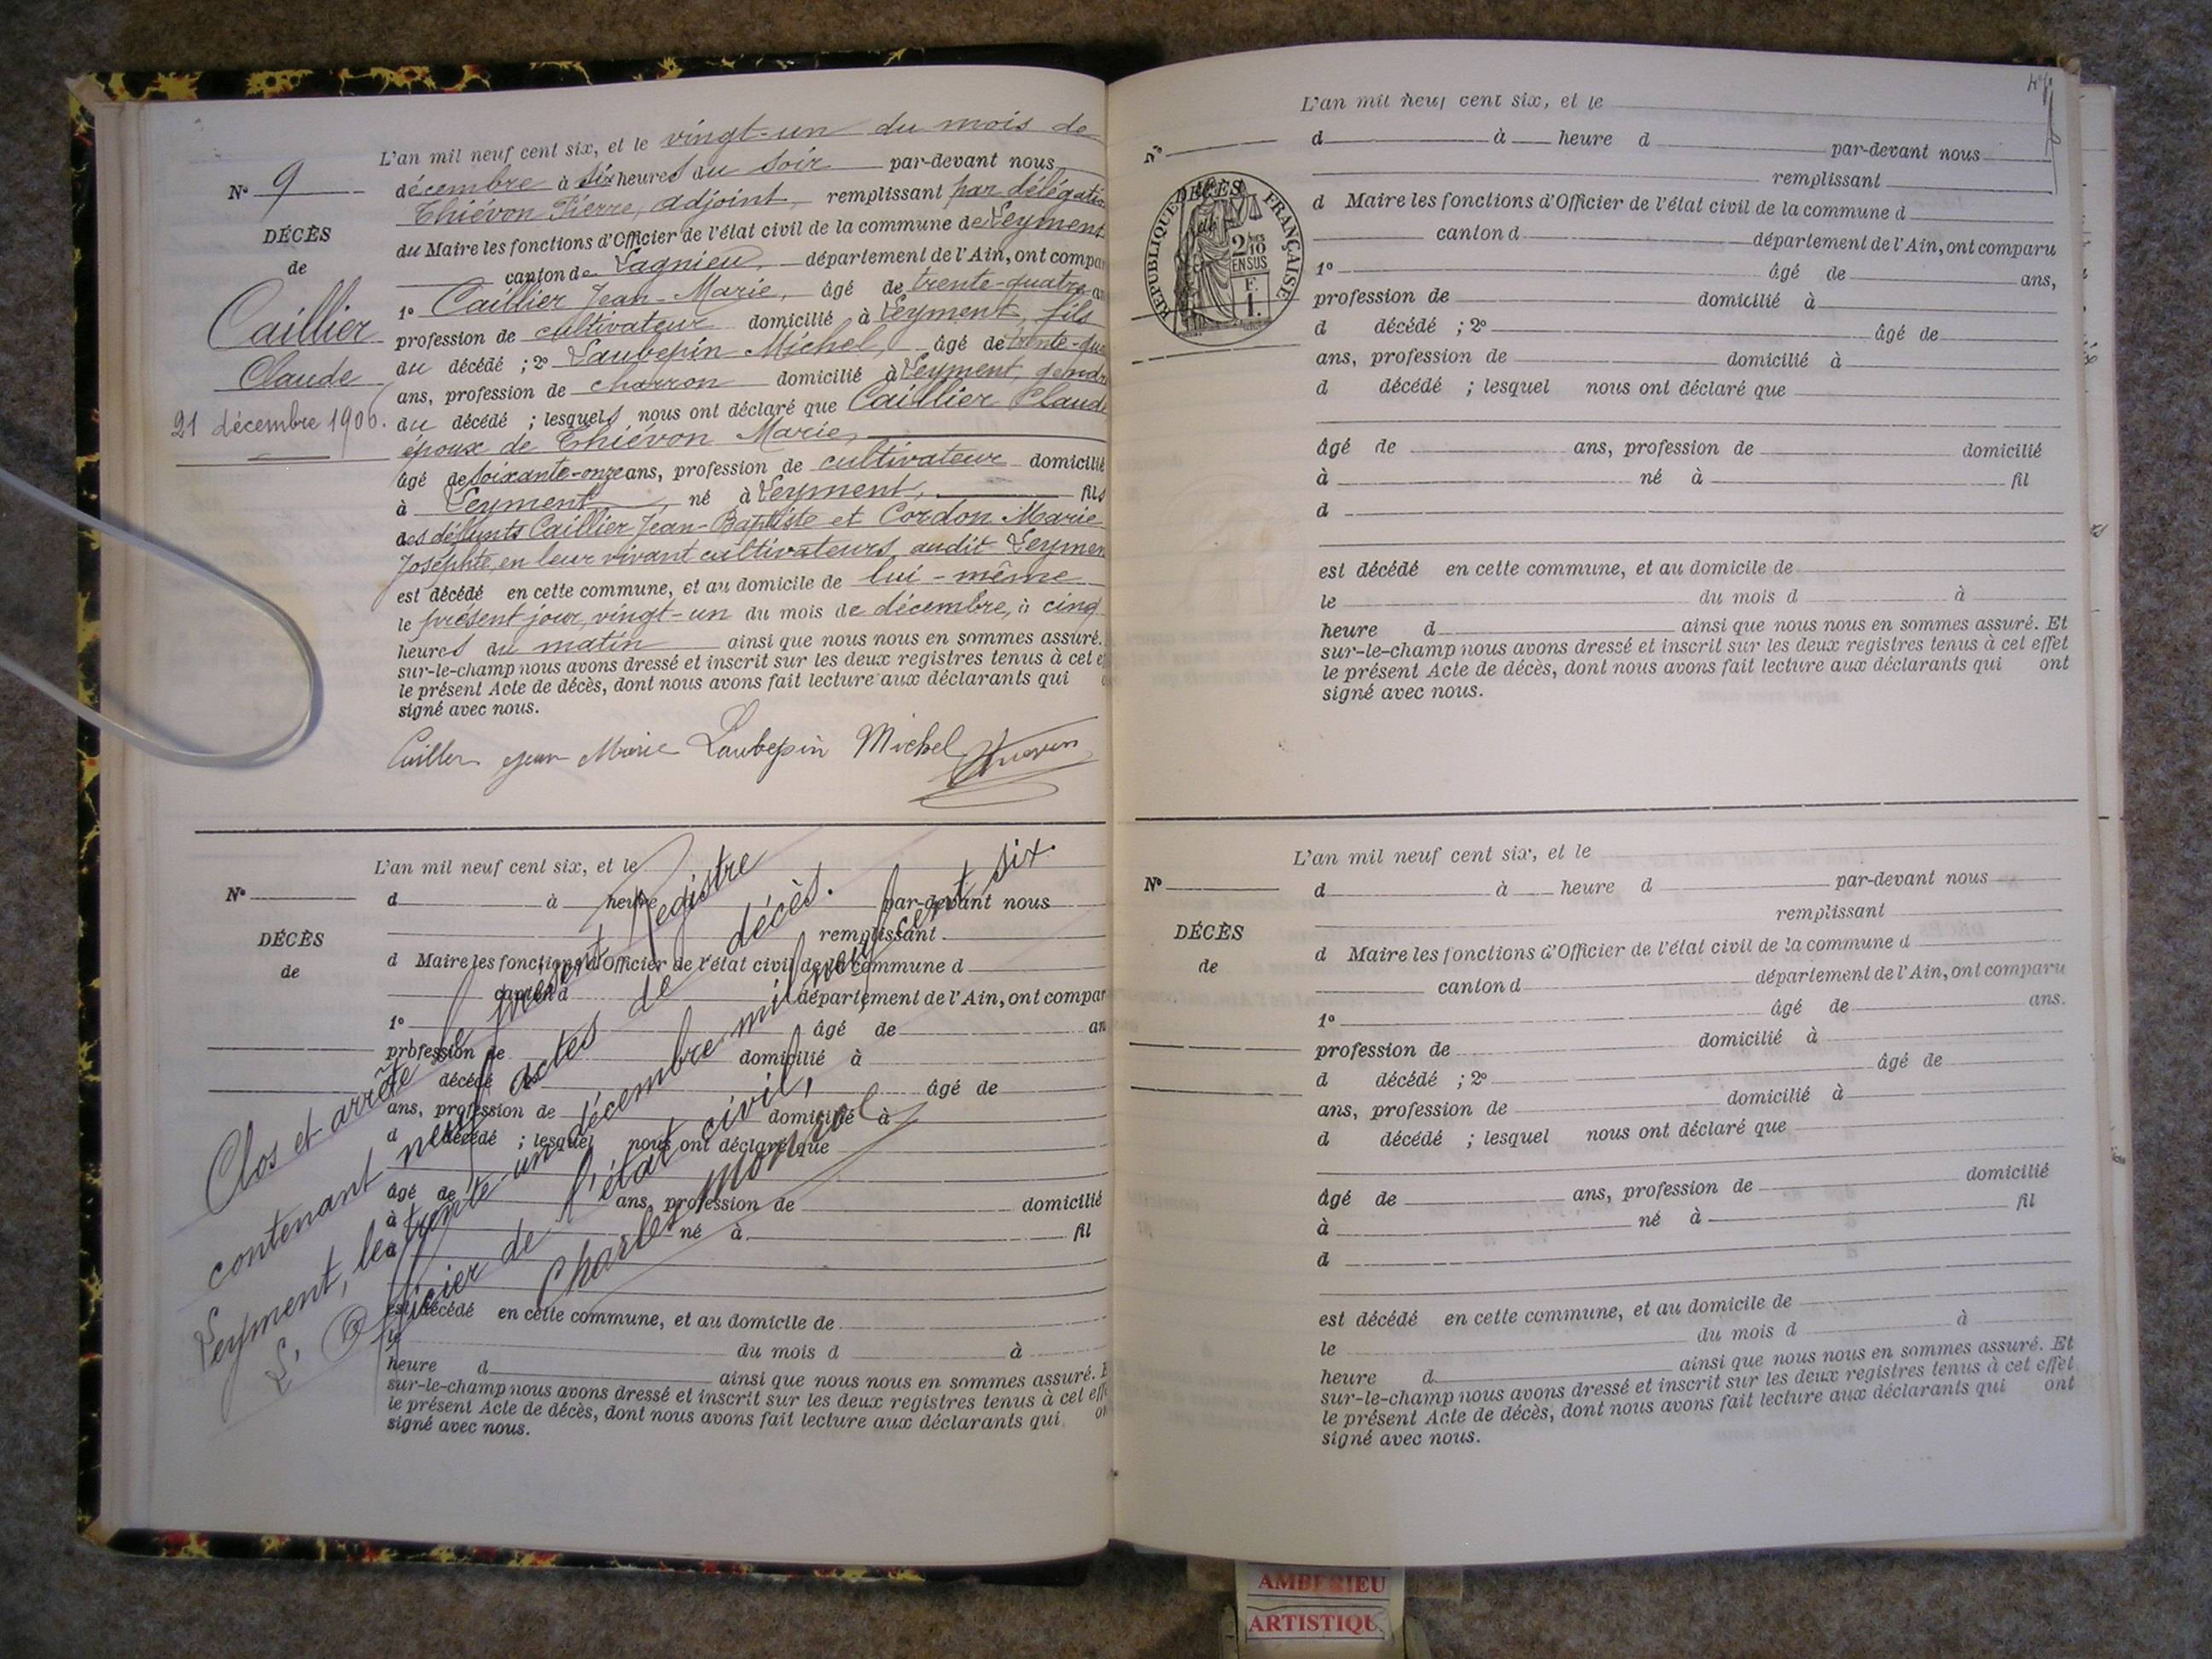 N° 9
DÉCÈS
de
Caillier
Claude
21 décembre 1906.
L'an mil neuf cent six, et le vingt-un du mois de
décembre à six heures du soir par-devant nous
Thiévon Pierre, adjoint, remplissant par délégation
du Maire les fonctions d'Officier de l'état civil de la commune de Leyment
canton de Lagnieu, département de l'Ain, ont compa
1° Caillier Jean-Marie, âgé de trente-quatre an
profession de cultivateur domicilié à Leyment, fils
du décédé ; 2° Laubepin Michel, âgé de trente-qua
ans, profession de charron domicilié à Leyment, gendre
du décédé ; lesquels nous ont déclaré que Caillier Claude
époux de Thiévon Marie,
âgé de soixante-onze ans, profession de cultivateur domicilié
à Leyment né à Leyment, fils
des défunts Caillier Jean-Baptiste et Cordon Marie
Josephte, en leur vivant cultivateurs audit Leymen
est décédé en cette commune, et au domicile de lui-même
le présent jour, vingt-un du mois de décembre, à cinq
heures du matin ainsi que nous nous en sommes assuré.
sur-le-champ nous avons dressé et inscrit sur les deux registres tenus à cet e
le présent Acte de décès, dont nous avons fait lecture aux déclarants qui
signé avec nous.
Caillier Jean Marie Laubepin Michel Thievon
N°
DÉCÈS
de
L'an mil neuf cent six, et le
d à heure par-devant nous
remplissant
d Maire les fonctions d'Officier de l'état civil de la commune d
canton d département de l'Ain, ont compar
1° âgé de an
profession de domicilié à
décédé âgé de
ans, profession de domicilié à
d décédé ; lesquel nous ont déclaré que
âgé de ans, profession de domicilié
à né à fil
d
est décédé en cette commune, et au domicile de
le du mois d à
heure d ainsi que nous nous en sommes assuré. E
sur-le-champ nous avons dressé et inscrit sur les deux registres tenus à cet eff
le présent Acte de décès, dont nous avons fait lecture aux déclarants qui on
signé avec nous.
Clos et arrêté le présent Registre
contenant neuf actes de décès.
Leyment, le trente un décembre mil neuf cent six.
L'Officier de l'état civil,
Charles Monnel
N°
DÉCÈS
de
RÉPUBLIQUE FRANÇAISE
2/10 EN SUS
F.
1.
L'an mil neuf cent six, et le
d à heure d par-devant nous
remplissant
d Maire les fonctions d'Officier de l'état civil de la commune d
canton d département de l'Ain, ont comparu
1° âgé de ans,
profession de domicilié à
d décédé ; 2° âgé de
ans, profession de domicilié à
d décédé ; lesquel nous ont déclaré que
âgé de ans, profession de domicilié
à né à fil
d
est décédé en cette commune, et au domicile de
le du mois d à
heure d ainsi que nous nous en sommes assuré. Et
sur-le-champ nous avons dressé et inscrit sur les deux registres tenus à cet effet
le présent Acte de décès, dont nous avons fait lecture aux déclarants qui ont
signé avec nous.
N°
DÉCÈS
de
L'an mil neuf cent six, et le
d à heure d par-devant nous
remplissant
d Maire les fonctions d'Officier de l'état civil de la commune d
canton d département de l'Ain, ont comparu
1° âgé de ans.
profession de domicilié à
d décédé ; 2° âgé de
ans, profession de domicilié à
d décédé ; lesquel nous ont déclaré que
âgé de ans, profession de domicilié
à né à fil
d
est décédé en cette commune, et au domicile de
le du mois d à
heure d ainsi que nous nous en sommes assuré. Et
sur-le-champ nous avons dressé et inscrit sur les deux registres tenus à cet effet
le présent Acte de décès, dont nous avons fait lecture aux déclarants qui ont
signé avec nous.
AMBERIEU
ARTISTIQU